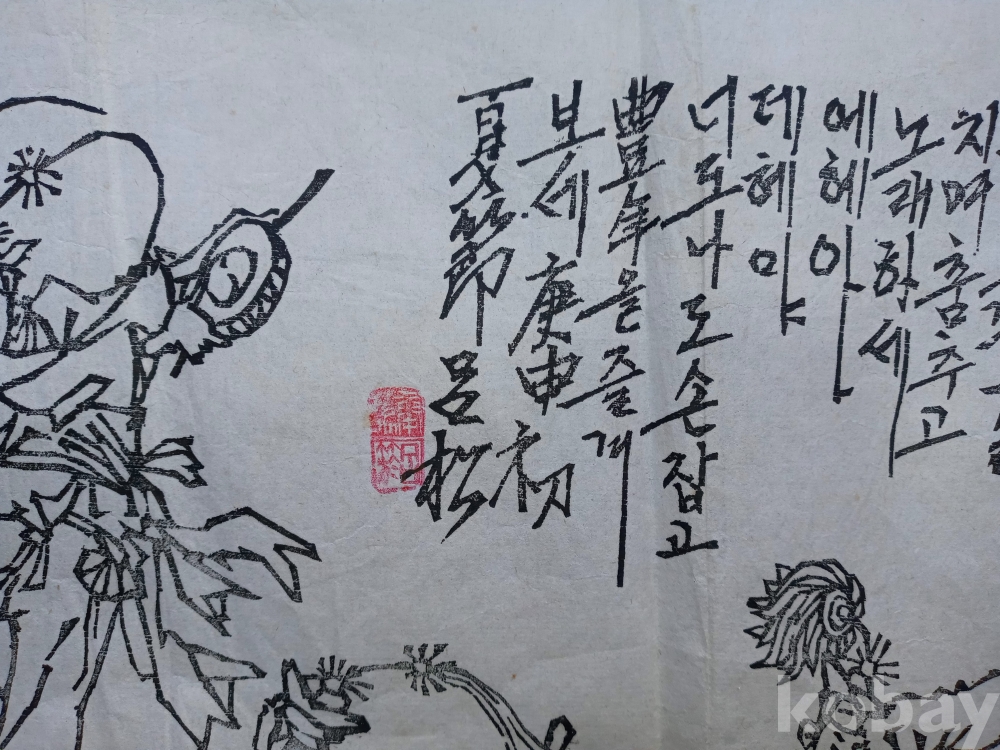 치며 춤추고
노래하세
에헤아
데헤야
너도나도 손잡고
豊年을 즐게
보세 庚申初
夏節 呂松
kobay